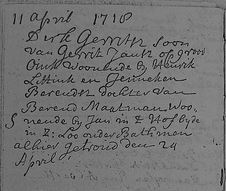 11 April 1718
Dirk Gerritsz soon
van Gerrit Jansz op groot
Oink Woonende by Henrik
Lettink en Jenneken
Berendts dochter van
Berend Maatman Woo-
nende by Jan in 't Hof byde
in 't Loo onder Bathmen
alhier getrout den 24
April